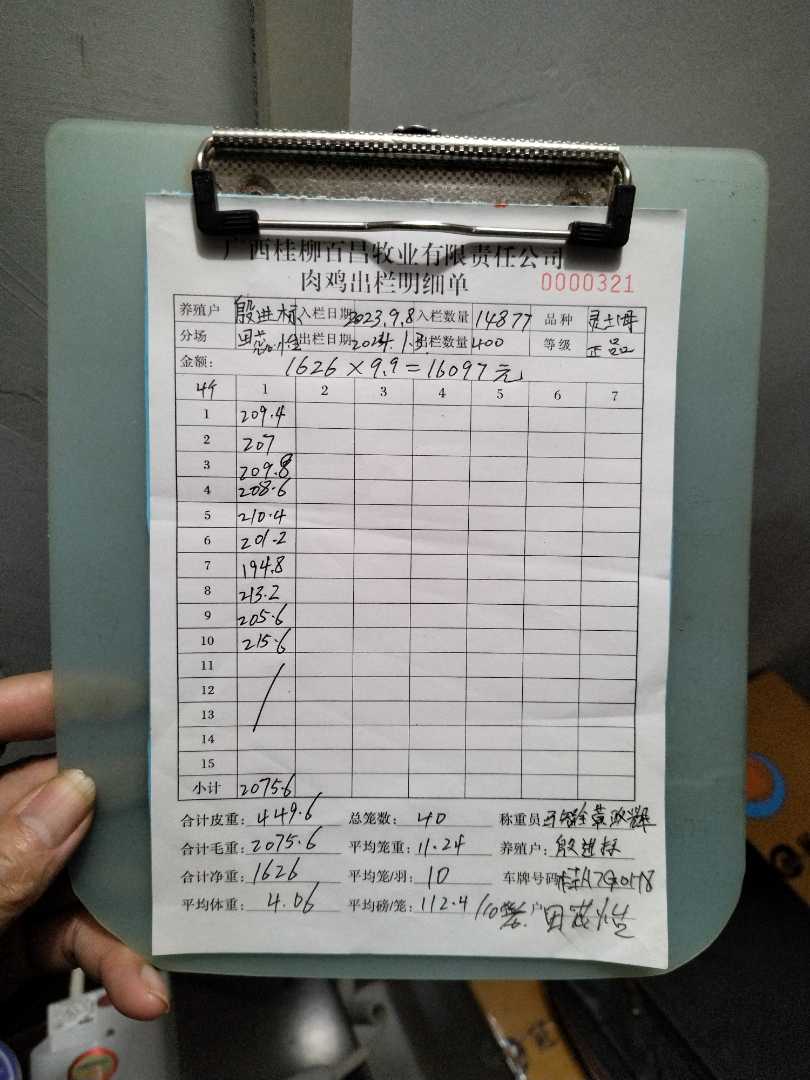 广西桂柳百昌牧业有限责任公司
肉鸡出栏明细单 0000321
养殖户 殷进标 入栏日期 2023.9.8 入栏数量 14877 品种 灵土母
分场 出栏日期 2024.1.3 出栏数量 400 等级 正品
金额: 1626×9.9=16097元
4个 1 2 3 4 5 6 7
1 209.4
2 207
3 209.8
4 208.6
5 210.4
6 201.2
7 194.8
8 213.2
9 205.6
10 215.6
11
12
13
14
15
小计 2075.6
合计皮重: 449.6 总笼数: 40 称重员
合计毛重: 2075.6 平均笼重: 11.24 养殖户: 殷进标
合计净重: 1626 平均笼/羽: 10 车牌号码
平均体重: 4.06 平均磅/笼: 112.4 户